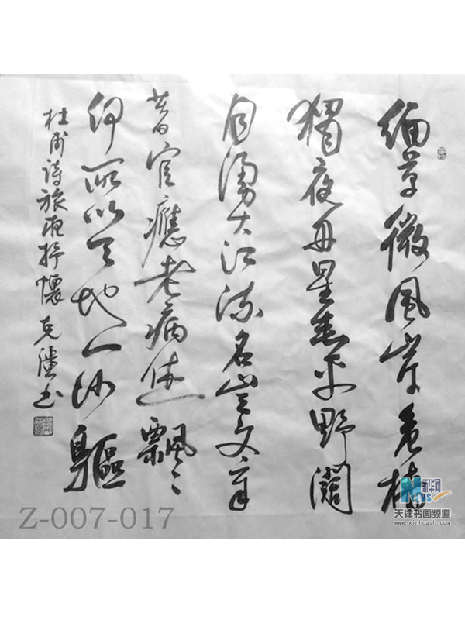 細草微風岸危樯
獨夜舟星垂平野闊
月湧大江流名豈文章
著官應老病休飄飄
何所似天地一沙鷗
杜甫诗旅夜抒懷 克书
Z-007-017
天津书画频道